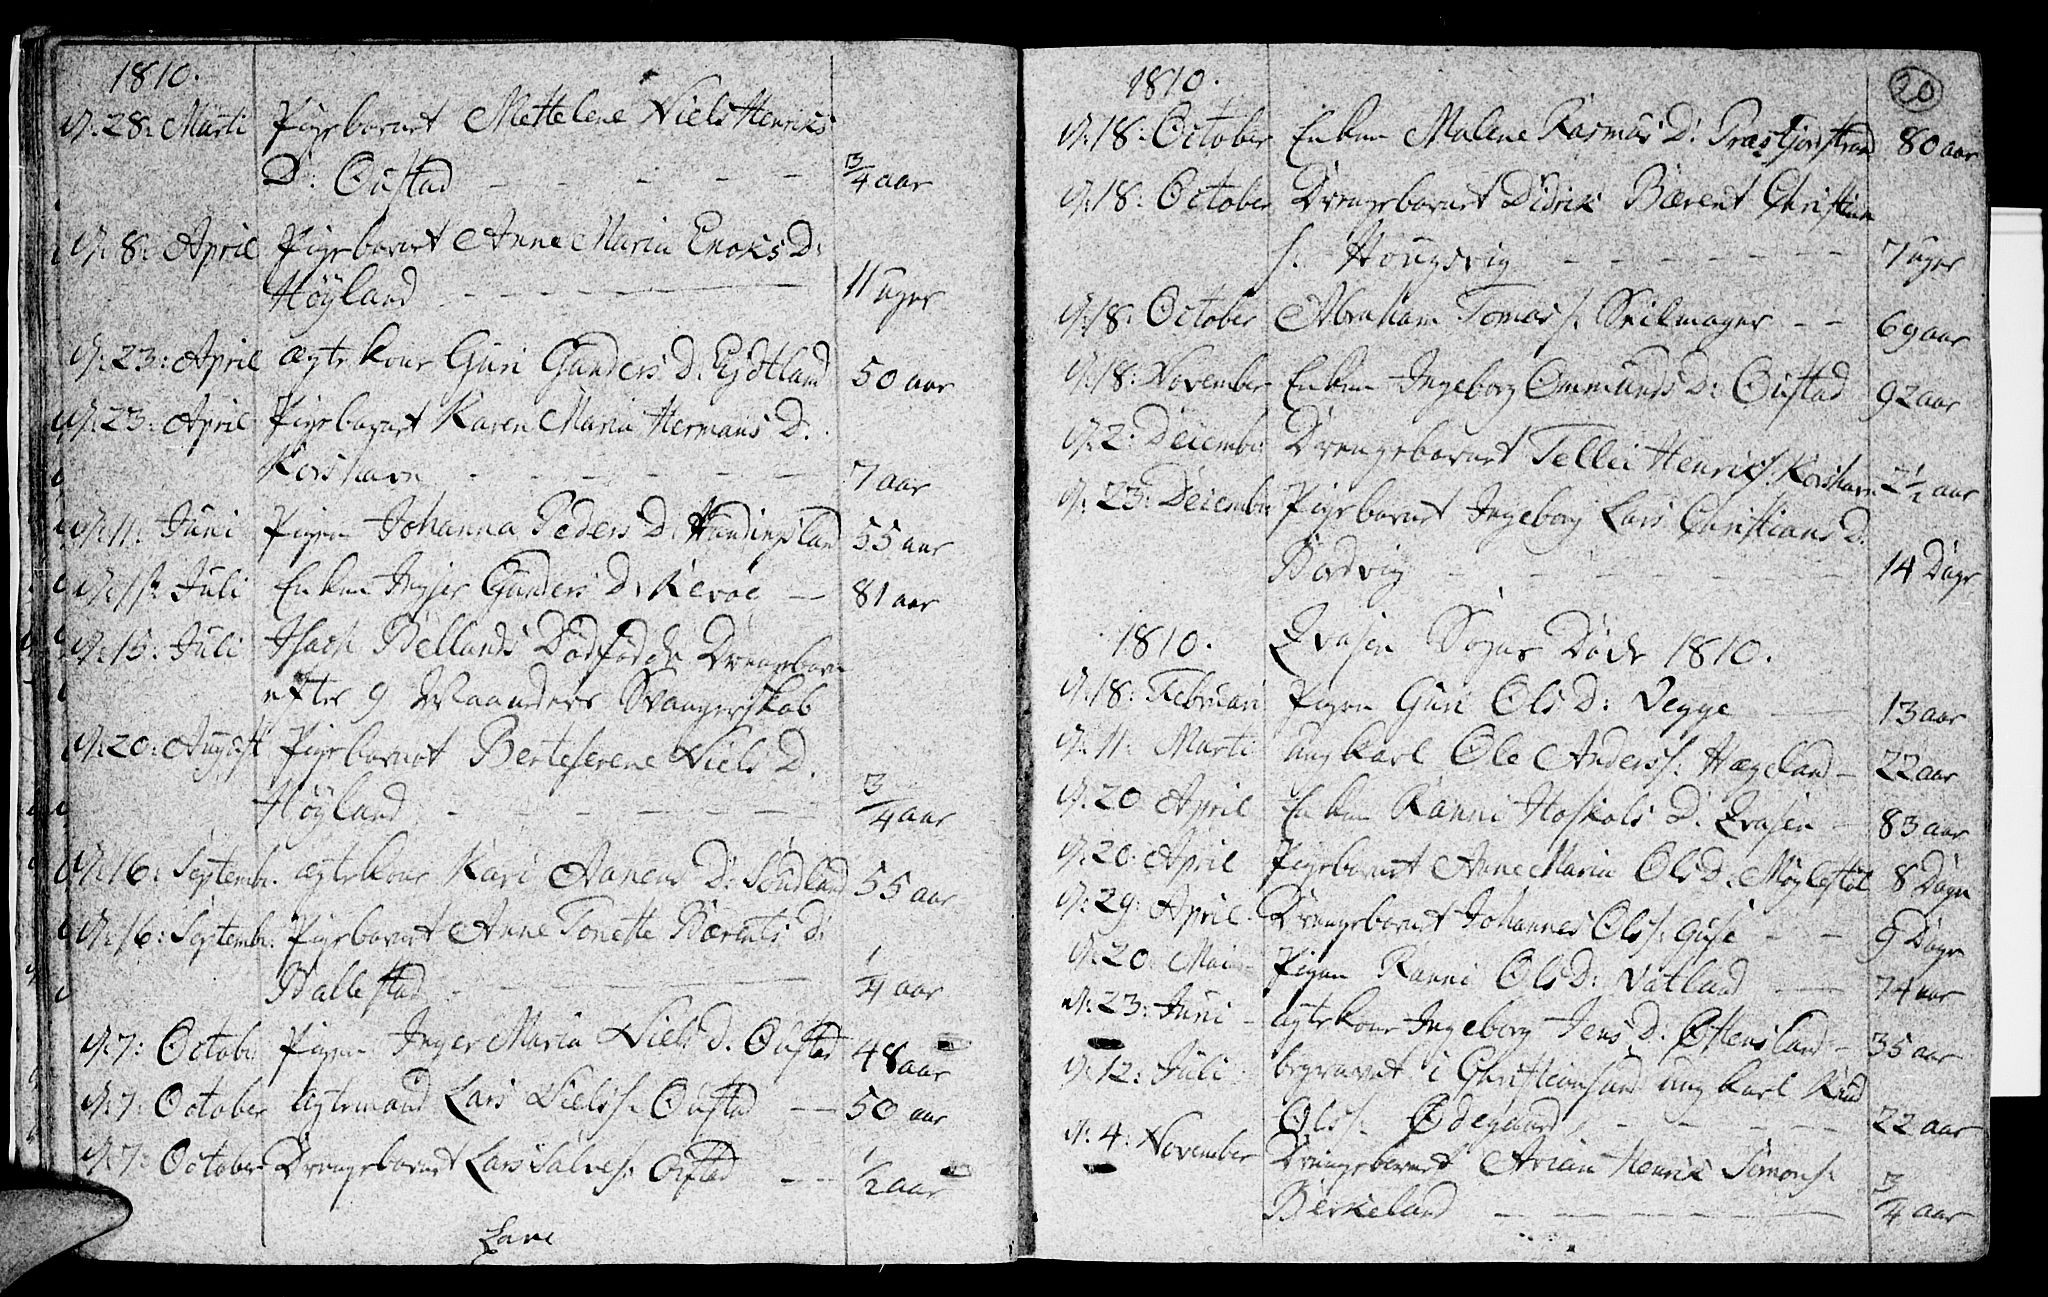 1810.
d: 28: Marti Pigebarnet Mettelene Niels Henriks
D: Oustad — — — — — — 3/4 aar
d: 8: April Pigebarnet Anne Maria Enoks D:
Höyland — — — — 11 uger
d: 23: April ægtekone Guri Gunders D: Eydtland 50 aar
d: 23: April Pigebarnet Karen Maria Hermans D.
Korshavn — — — — — — 7 aar
d: 11: Juni Pigen Johanna Peders D: 55 aar
d: Juli Enken Gunders D: 81 aar
d: 15: Juli Isach Bellands Dødfødde Drengebarn
efter 9 Maaneders Svangerskab
d: 20: August Pigebarnet Berteserene Niels D.
Höyland — — — — — — 3/4 aar
d: 16: Septembr. ægtekone Kari Aanens D: Söndland 55 aar
d: 16: Septembr. Pigebarnet Anne Tonette Bærents D:
Ballestad — — — — 1/4 aar
d: 7: Octobr Pigen Inger Maria Niels D. Oustad 48 aar
d: 7: October ægtemand Lars Niels s. Oustad — — 50 aar
d: 7: October Drengebarnet Lars Salves s: Oustad — — 1/2 aar
20
1810.
d: 18: October Enken Malene Rasmus D: 80 aar
d: 18: October Drengebarnet Didrik Bærent Christian
s. Hougsvig — — — — — — 7 uger
d: 18: October Abraham Tomas s. Seilmager — — 69 aar
d: 18: November Enken Ingeborg Ommunds D: Oustad 92 aar
d: 2: Decembr Drengebarnet Tellei Henrik s. Korshavn 2 1/2 aar
d: 23: Decembr Pigebarnet Ingeborg Lars Christians D.
— — — — — — 14 Dage
1810. Qvasen Sogns Døde 1810.
d: 18: Februari Pigen Guri Ols D: Vegge — 13 aar
d: 11: Marti ung karl Ole Anders s. Hægeland — 22 aar
d: 20 April Enken Ranni Hoskols D: Qvasen — 83 aar
d: 20: April Pigebarnet Anne Maria Ols D. Möglestöl 8 Dage
d: 29: April Drengebarnet Johannes Ols s: — — 9 Dage
d: 20: Mai — Pigen Ranni Ols D: Vatland — 74 aar
d: 23: Juni — ægtekone Ingeborg Jens D: Oftensland — 35 aar
d: 12: Juli begravet i Christiansand ung karl Knud
Ols s. Ødegaard — — — — — 22 aar
d: 4: November Drengebarnet Arian Henrik Simon s.
Berkeland — — — — — — 3/4 aar